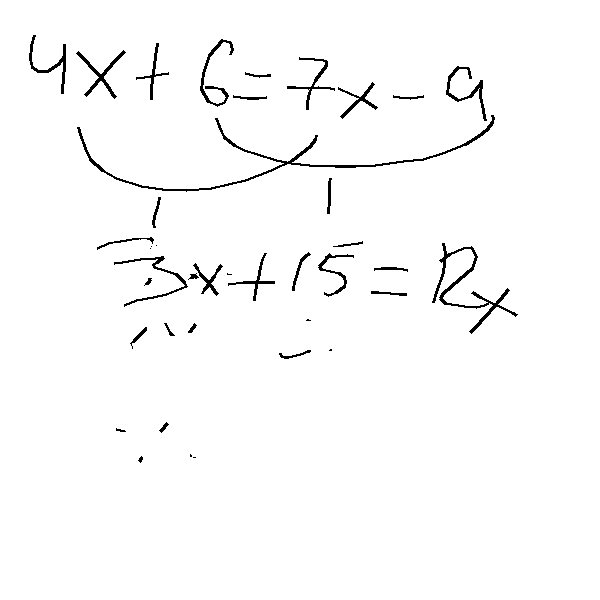 4x + 6 = 7x - 9
3x + 15 = 12x